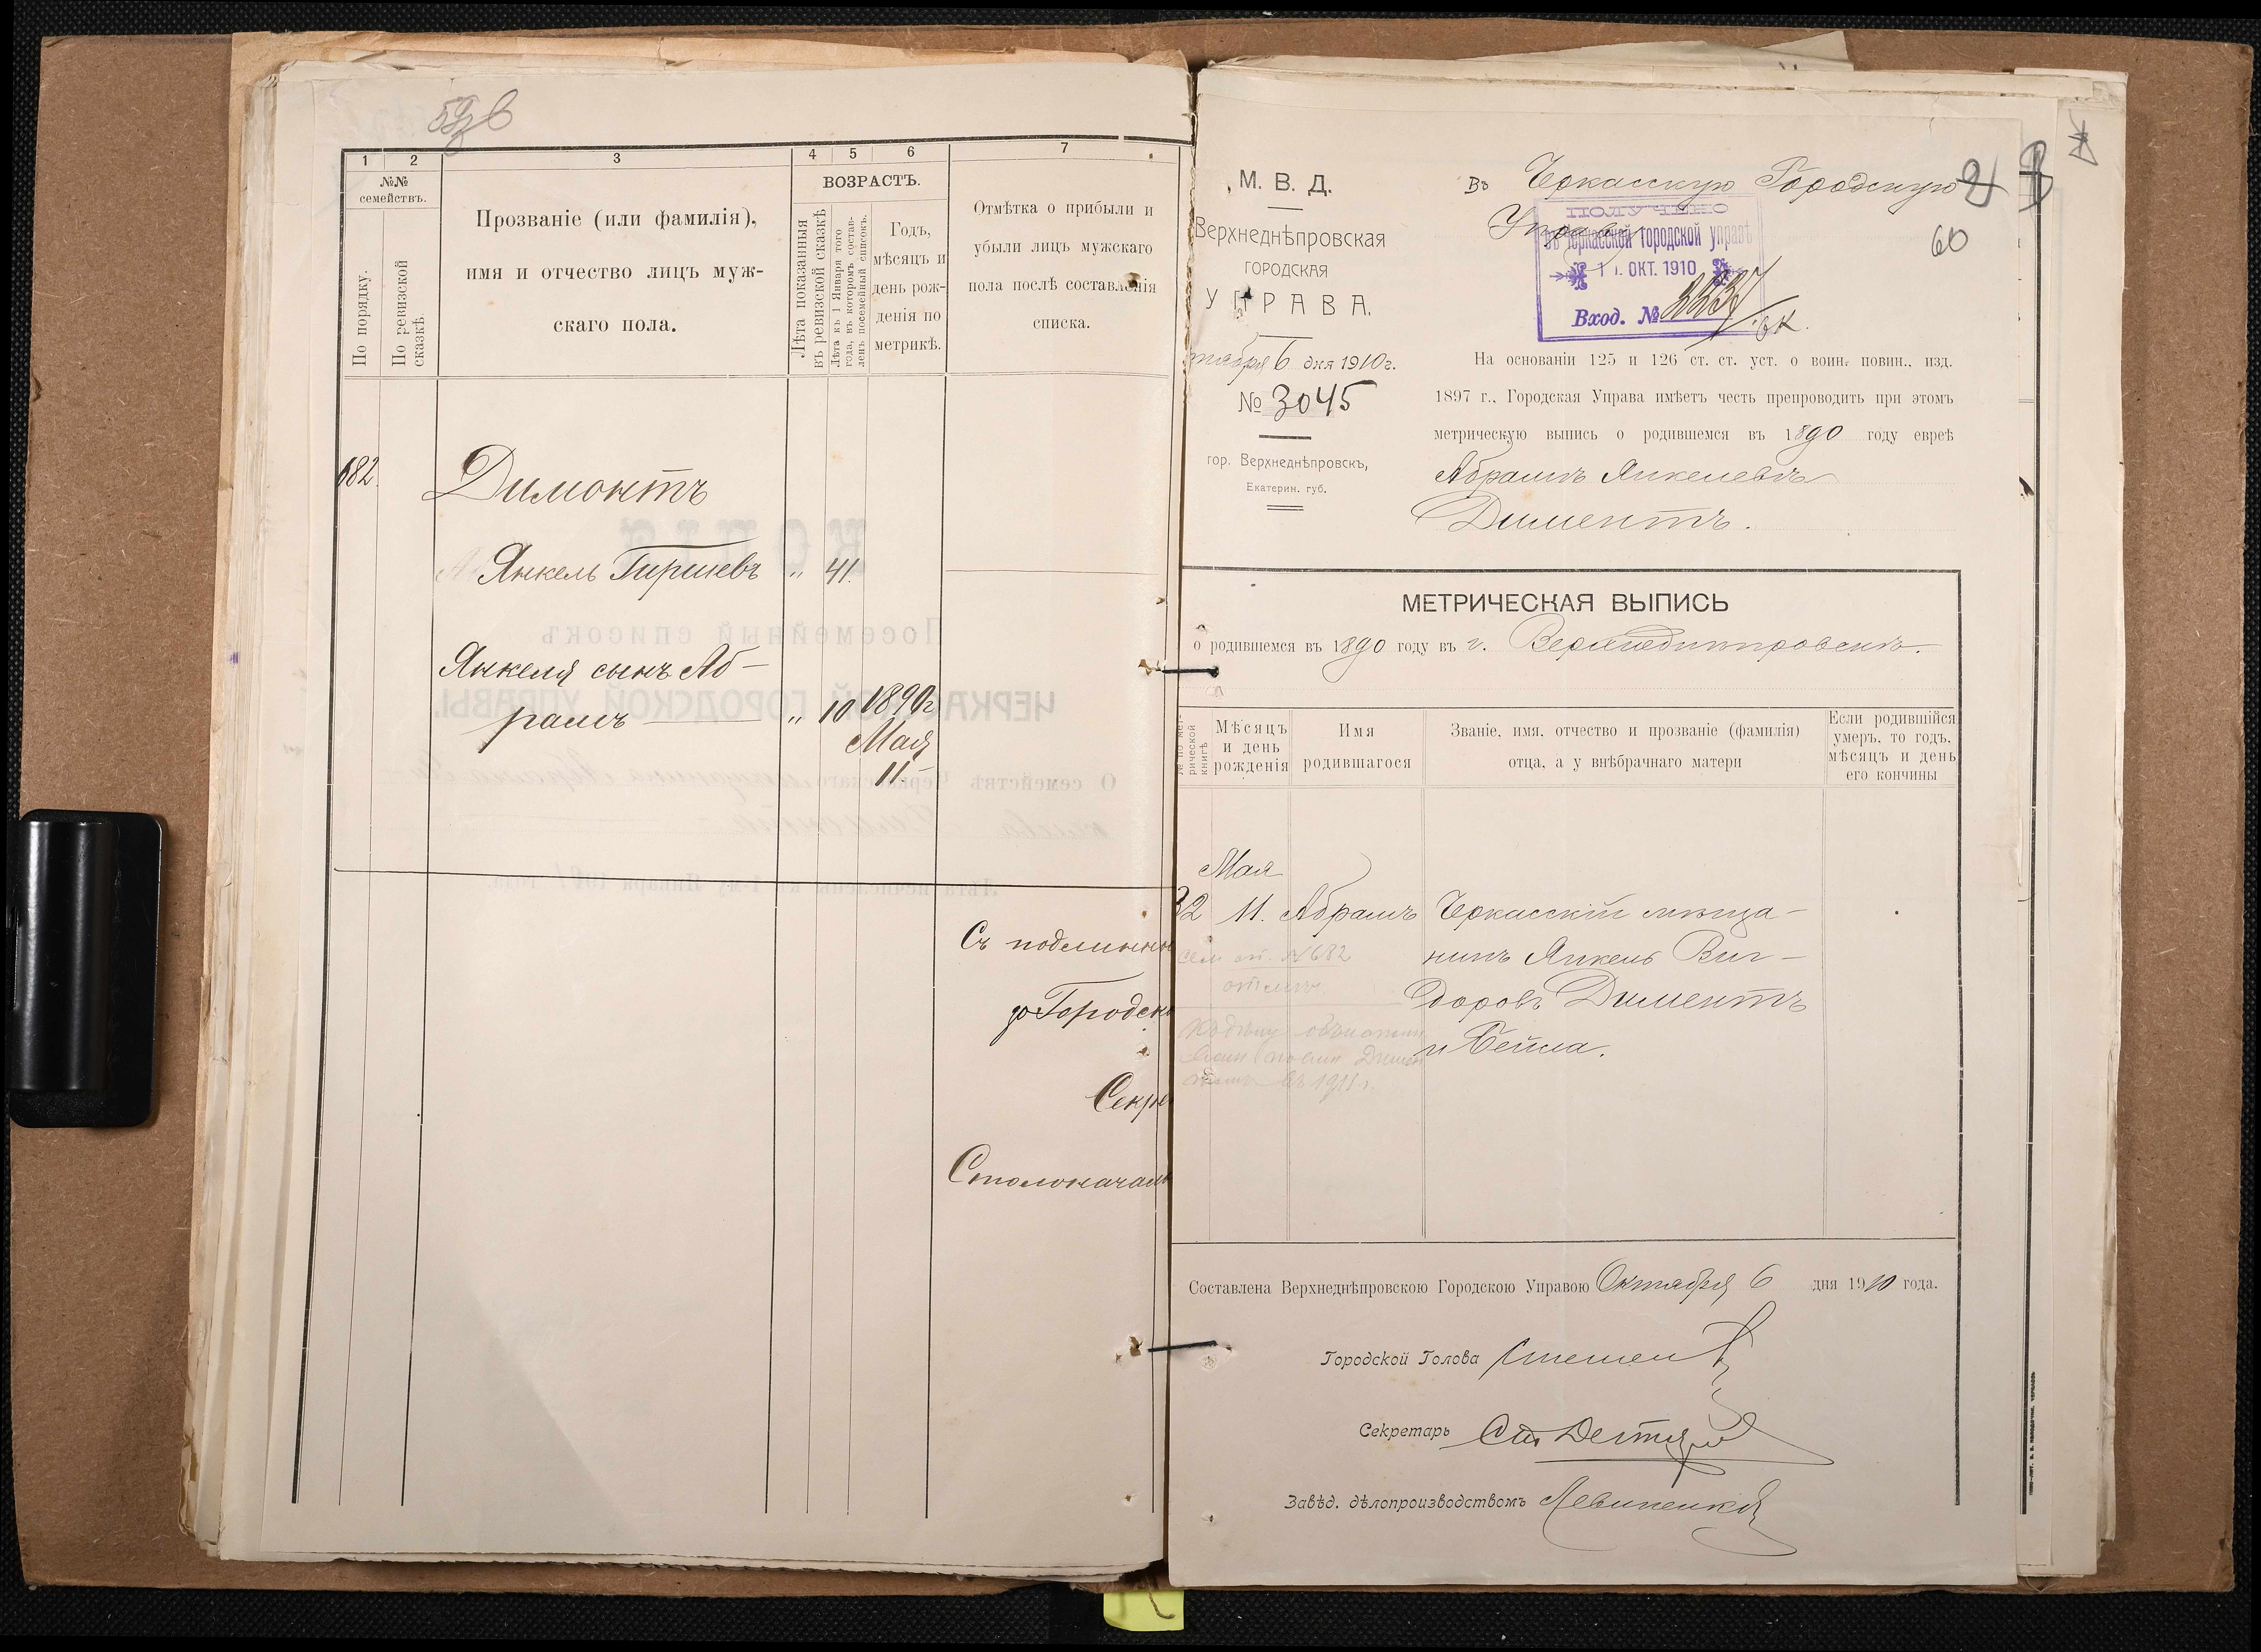 1 2 3 4 5 6 7
№№ семействъ.
По порядку.
По ревизской сказкѣ.
Прозваніе (или фамилія),
имя и отчество лицъ муж-
скаго пола.
ВОЗРАСТЪ.
Лѣта показанныя
въ ревизской сказкѣ
Лѣта къ 1 Января того
года, въ которомъ состав-
ленъ посемейный списокъ.
Годъ,
мѣсяцъ и
день рож-
денія по
метрикѣ.
Отмѣтка о прибыли и
убыли лицъ мужскаго
пола послѣ составленія
списка.
682
Димонтъ
Янкель Гиршевъ „ 41.
Янкеля сынъ Аб-
рамъ „ 10 1890г
Мая
11
Съ подлинн
Городск
Секре
Столоначаль
М. В. Д.
Верхнеднѣпровская
ГОРОДСКАЯ
УПРАВА.
тября 6 дня 1910 г.
№ 3045
гор. Верхнеднѣпровскъ,
Екатерин. губ.
Въ Черкасскую Городскую
Управу
60
ПОЛУЧЕНО
въ Черкасской городской управѣ
ОКТ. 1910
Вход. №
На основаніи 125 и 126 ст. ст. уст. о воин. повин., изд.
1897 г., Городская Управа имѣетъ честь препроводить при этомъ
метрическую выпись о родившемся въ 1890 году евреѣ
Абрамъ Янкелевъ
Диментъ.
МЕТРИЧЕСКАЯ ВЫПИСЬ
о родившемся въ 1890 году въ г. Верхнеднѣпровскѣ.
№ по мет-
рической
книгѣ
Мѣсяцъ
и день
рожденія
Имя
родившагося
Званіе, имя, отчество и прозваніе (фамилія)
отца, а у внѣбрачнаго матери
Если родившійся
умеръ, то годъ,
мѣсяцъ и день
его кончины
Мая
32 11. Абрамъ Черкасскій мѣща-
нинъ Янкель Виг-
доровъ Диментъ
и Бейла.
№ 682
въ 1911 г.
Составлена Верхнеднѣпровскою Городскою Управою Октября 6 дня 1910 года.
Городской Голова
Секретарь
Завѣд. дѣлопроизводствомъ